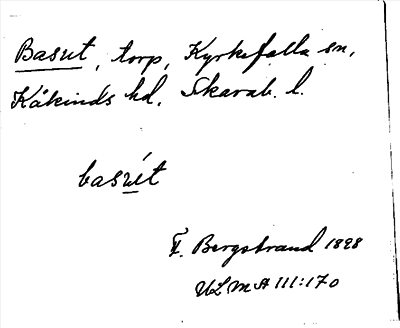 Basut, torp, Kyrkefalla sn,
Kåkinds hd, Skarab. l.
basút
F. Bergstrand 1898
ULMA 111:170